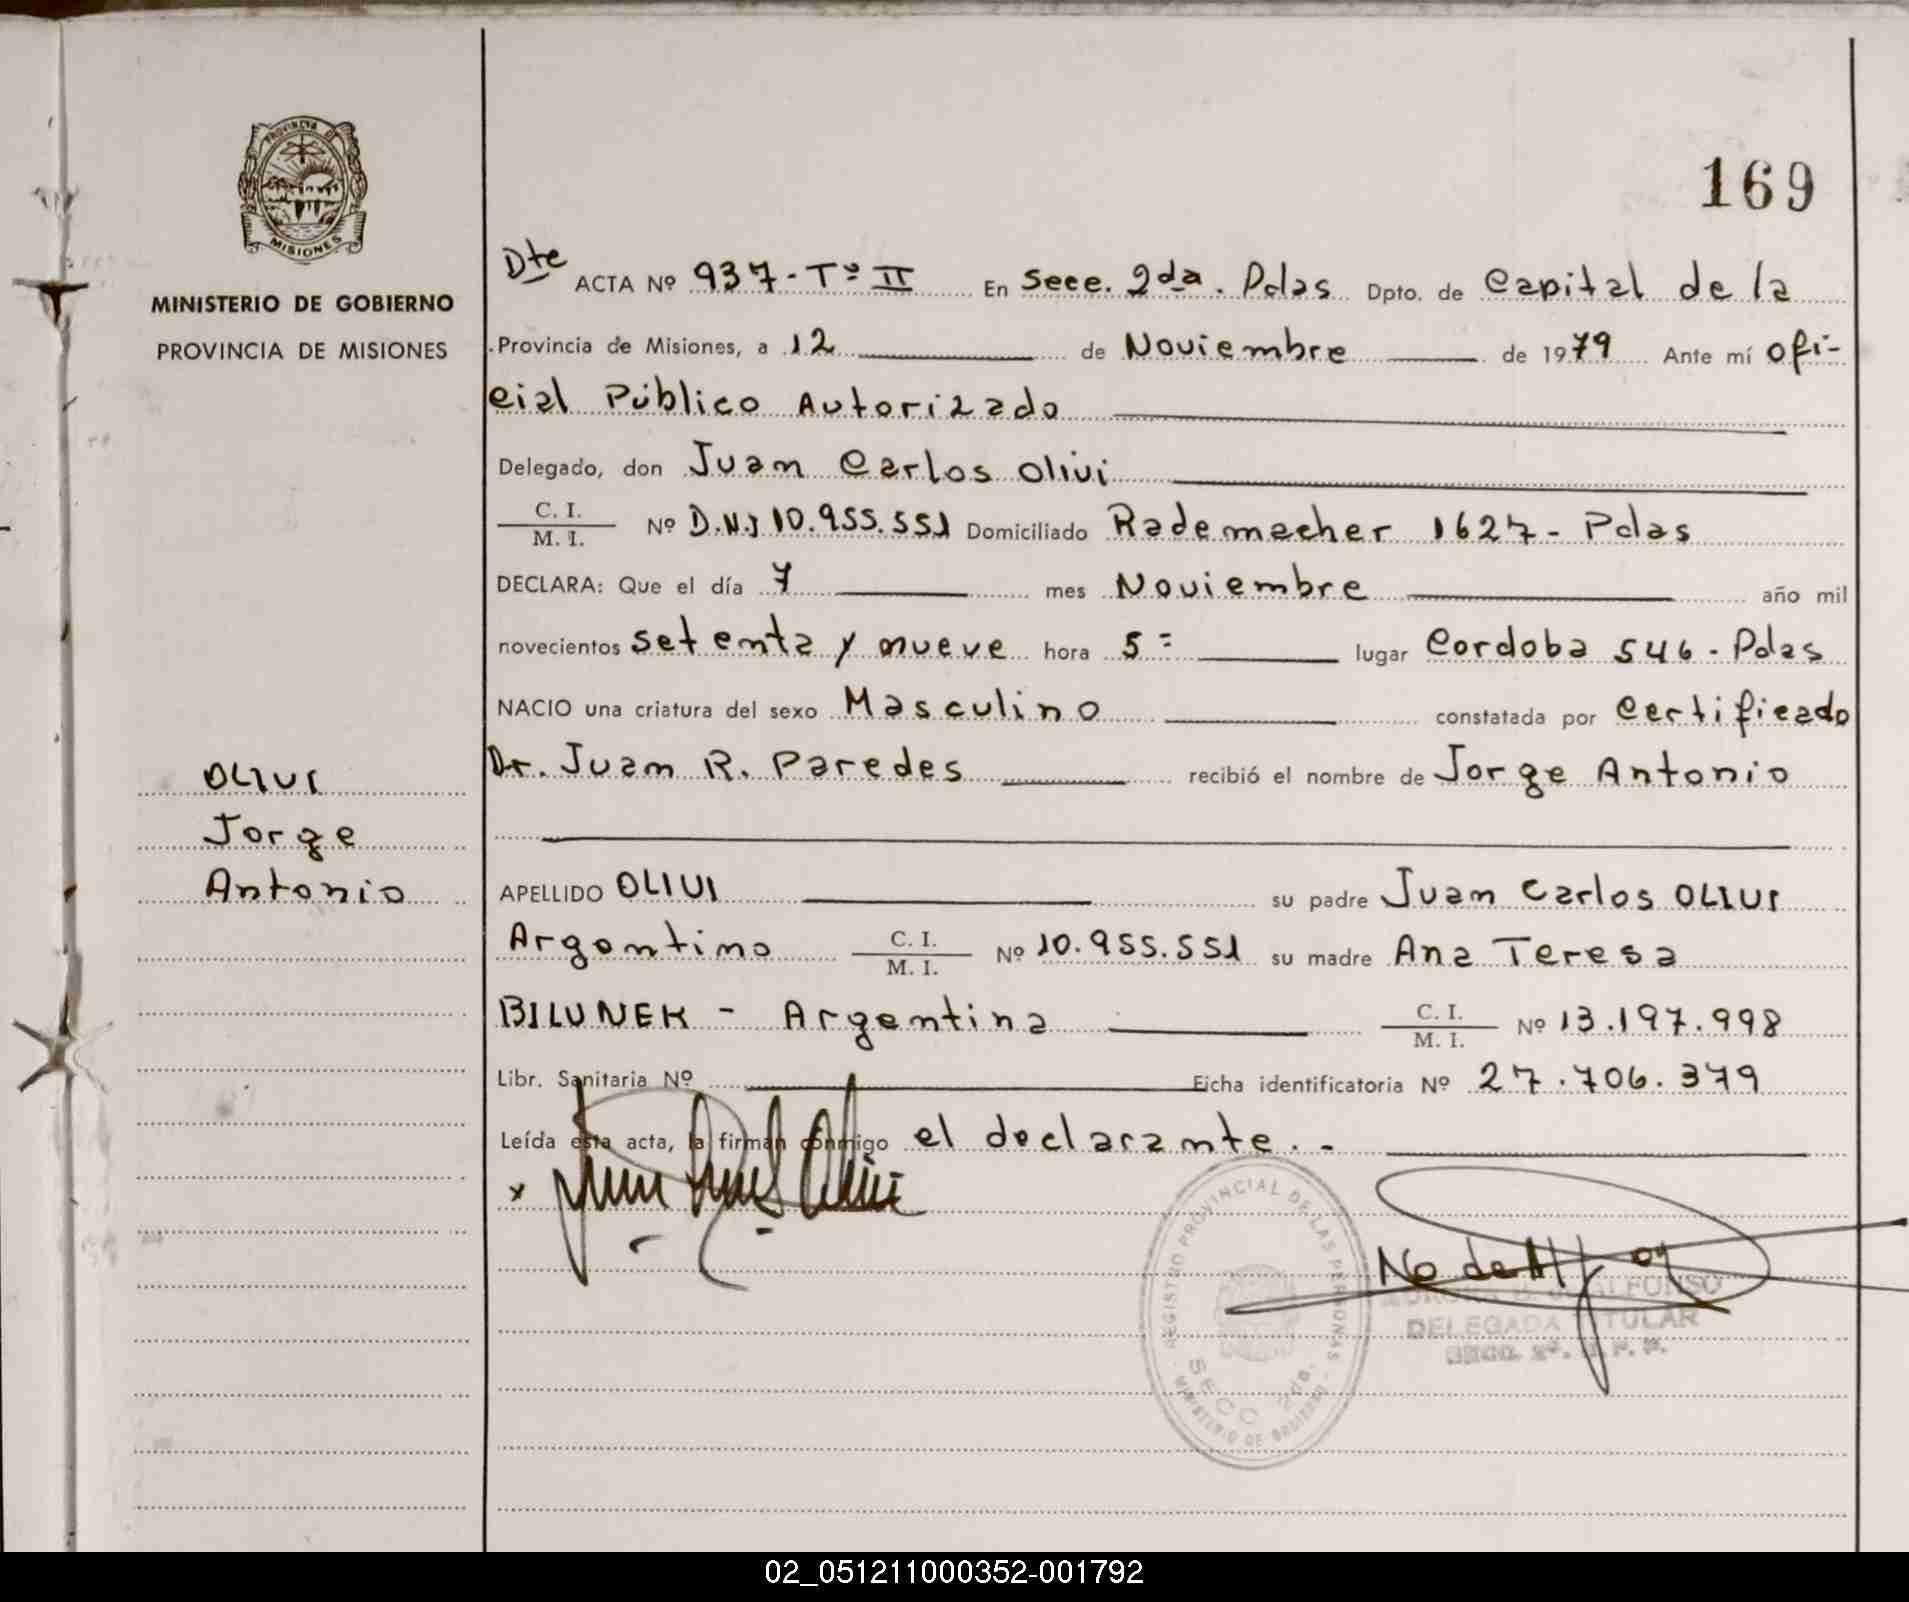 PROVINCIA DE
MISIONES
MINISTERIO DE GOBIERNO
PROVINCIA DE MISIONES
OLIVI
Jorge
Antonio
169
Dte ACTA Nº 937 - Tº II En Secc. 2da. Pdas Dpto. de Capital de la
Provincia de Misiones, a 12 de Noviembre de 1979 Ante mí ofi-
cial Público Autorizado
Delegado, don Juan Carlos Olivi
C. I.
M. I.
Nº D.N.I 10.955.551 Domiciliado Rademacher 1627 - Pdas
DECLARA: Que el día 7 mes Noviembre año mil
novecientos setenta y nueve hora 5= lugar Cordoba 546 - Pdas
NACIO una criatura del sexo Masculino constatada por Certificado
Dr. Juan R. Paredes recibió el nombre de Jorge Antonio
APELLIDO OLIVI su padre Juan Carlos OLIVI
Argentino C. I. M. I. Nº 10.955.551 su madre Ana Teresa
BILUNEK - Argentina C. I. M. I. Nº 13.197.998
Libr. Sanitaria Nº Ficha identificatoria Nº 27.706.379
Leída esta acta, la firman conmigo el declarante. -
x Juan Carlos Olivi
REGISTRO PROVINCIAL DE LAS PERSONAS
SECC 2da.
MINISTERIO DE GOBIERNO
ALFONSO
DELEGADA TITULAR
SECC. 2ª. R. P. P.
02_051211000352-001792